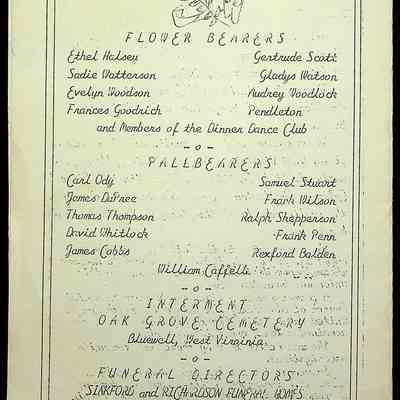 FLOWER BEARERS
Ethel Halsey Gertrude Scott
Sadie Watterson Gladys Watson
Evelyn Woodson Audrey Woodlock
Frances Goodrich Pendleton
and Members of the Dinner Dance Club
-o-
PALLBEARERS
Carl Ody Samuel Stuart
James DuPree Frank Wilson
Thomas Thompson Ralph Shepperson
David Whitlock Frank Penn
James Cobbs Rexford Bolden
William Caffelle
-o-
INTERMENT
OAK GROVE CEMETERY
Bluewell, West Virginia
-o-
FUNERAL DIRECTORS
SINKFORD and RICHARDSON FUNERAL HOMES